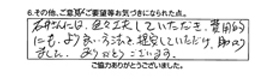 6.その他、ご意見・ご要望等お気づきになられた点。
石井さんには、色々工夫していただき、費用的
にも、より良い方法を提案していただけ、助かり
ました。ありがとうございます。
ご協力ありがとうございました。